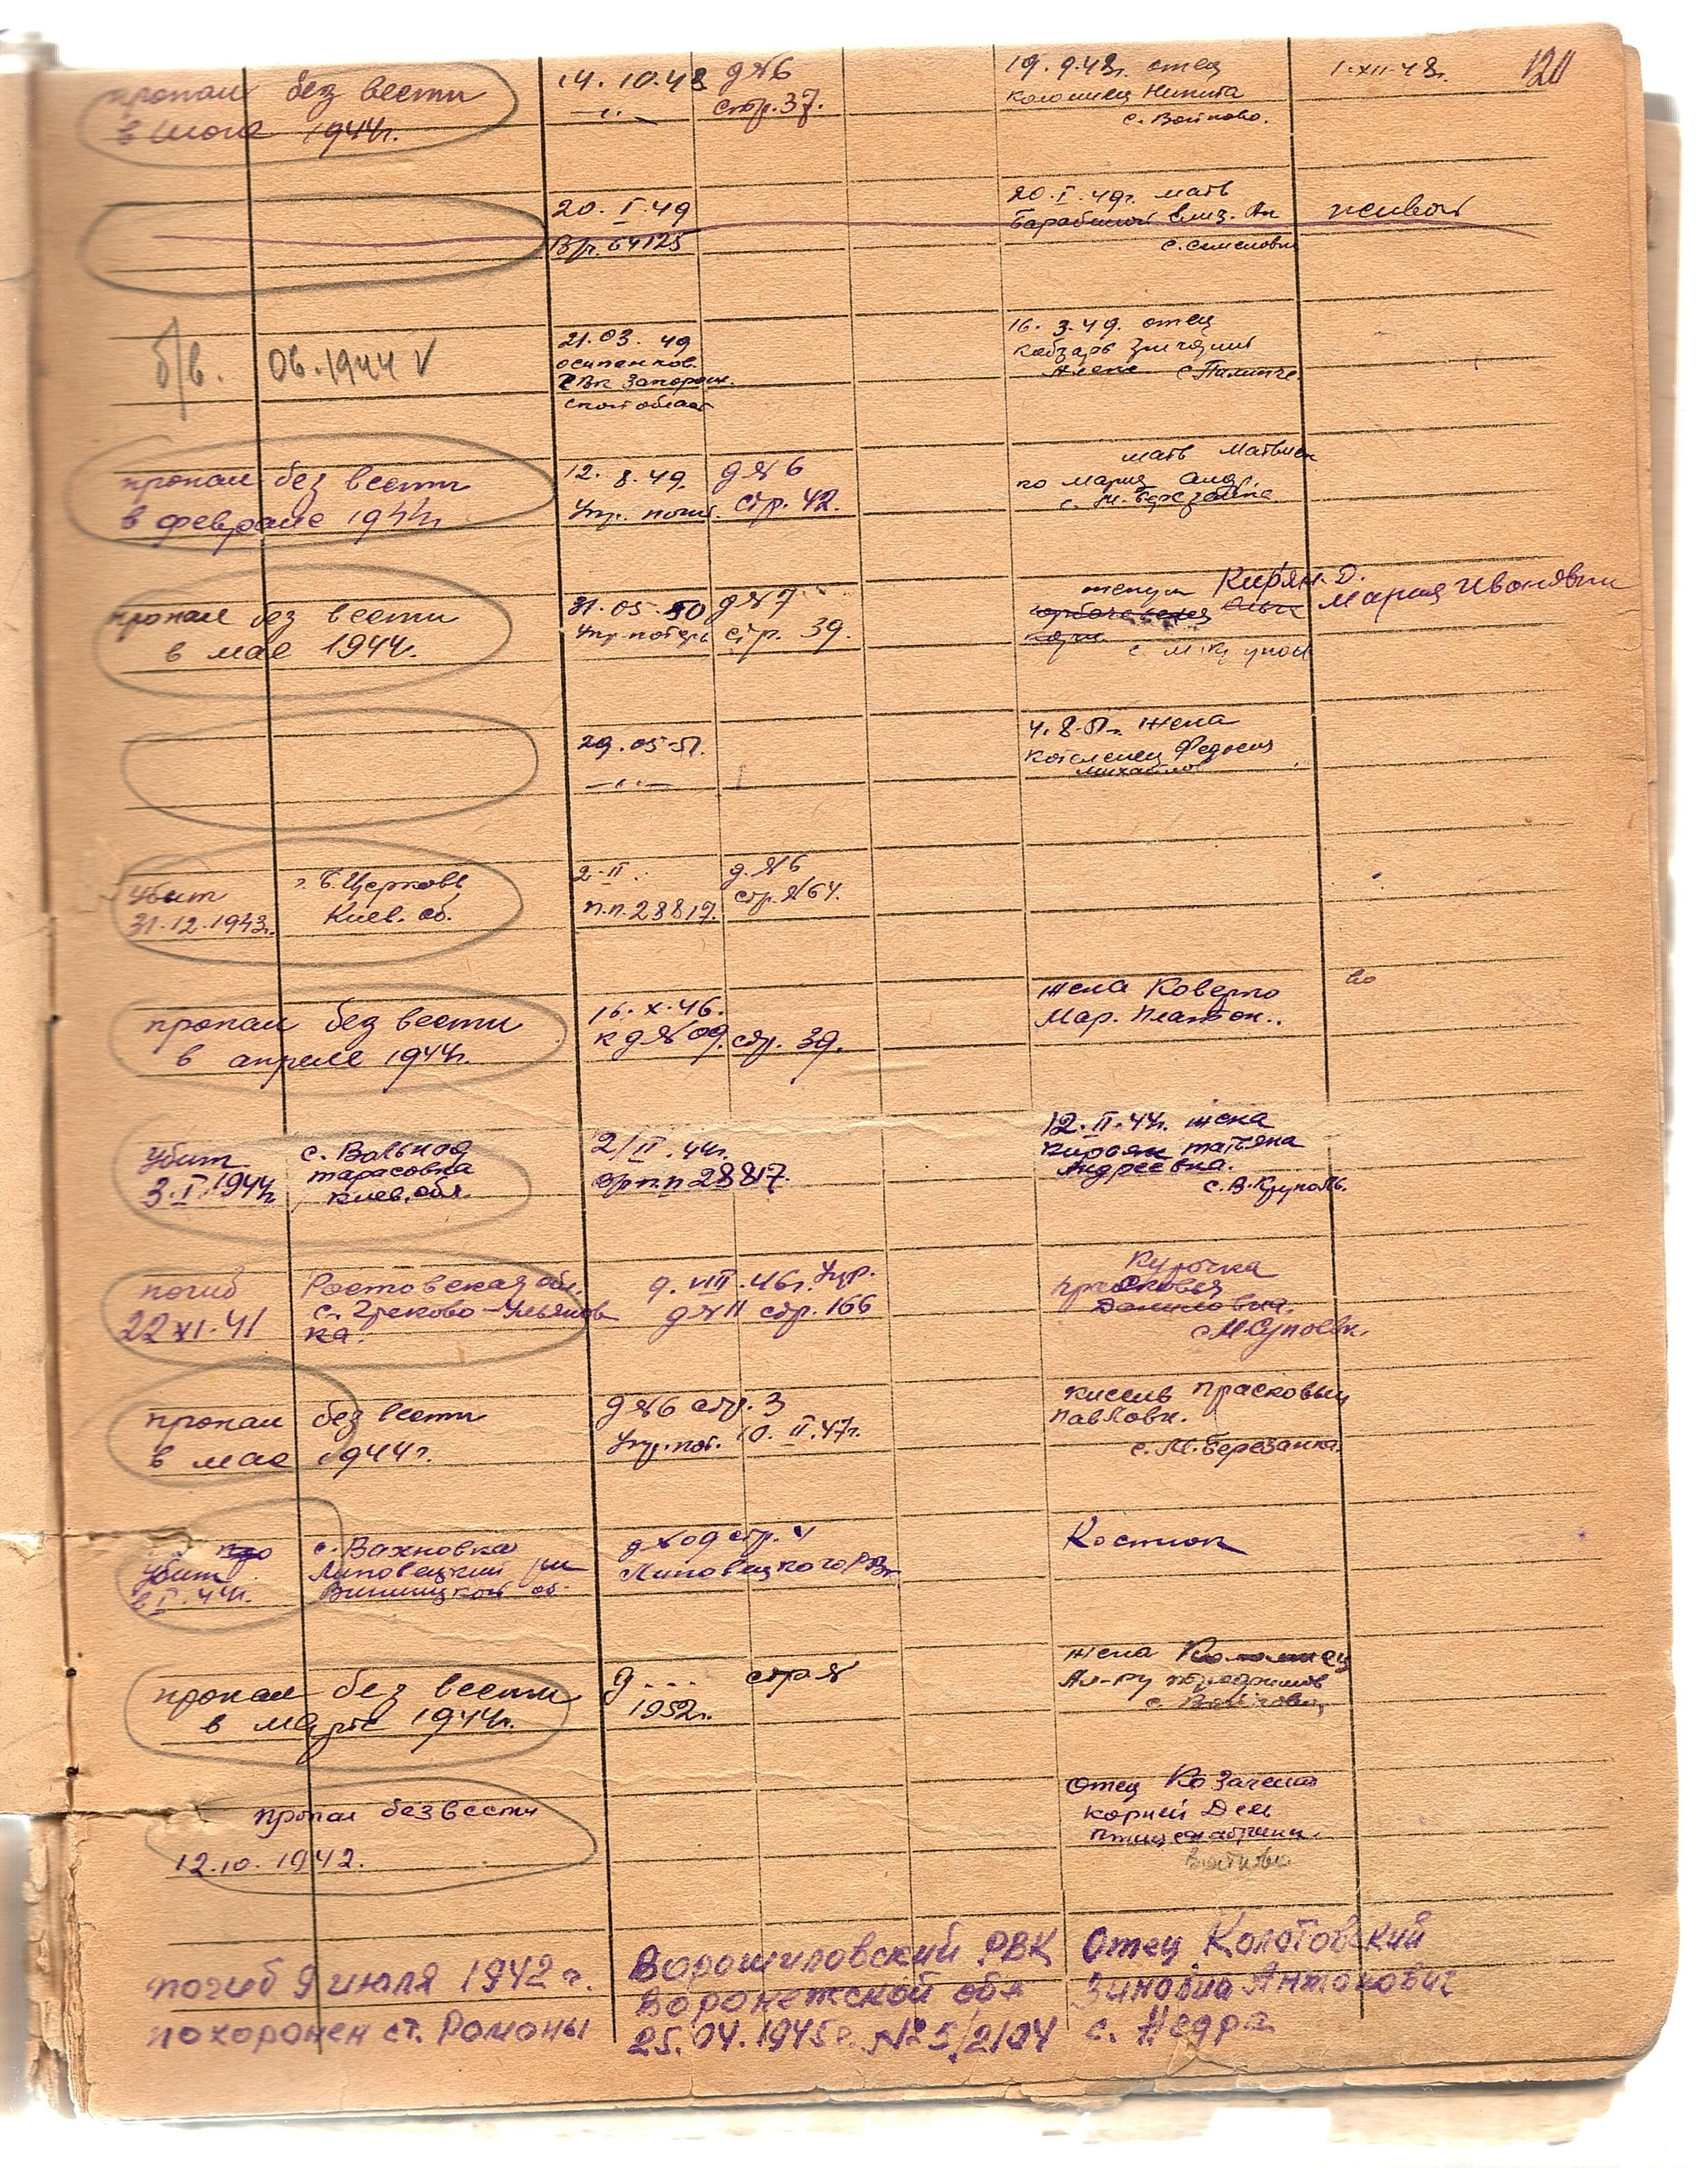 120
пропал без вести
в июле 1944г.
14. 10.48
д №6
стр. 37.
19. 9.48г. отец
Коломиец Никита
с. Войтово.
1-XII-48г.
20. I. 49
В/ч. 64125
20. I. 49г. мать
Елиз.
живой
б/в. 06.1944 √
21. 03. 49
РВК Запорож.
16. 3. 49. отец
Кобзарь
пропал без вести
в феврале 1944г.
12. 8. 49.
д №6
стр. 42.
мать Матвиен
ко Мария Анд.
с. М. Березанка.
пропал без вести
в мае 1944г.
31. 05. 50
упр. потерь
д №7
стр. 39.
Кирьян. Д.
Мария Ивановна
29. 05-51.
4. 8-51г. жена
Федосия
Михайлов
убит
31. 12. 1943г.
г. Б. Церковь
Киев. об.
2-II
п.п. 28817.
д. №6
стр. №64.
пропал без вести
в апреле 1944г.
16. X. 46.
к д №09. стр. 39.
жена Коверко
Мар. Платон..
во
убит
3. I. 1944г
с. Вольная
Тарасовка
Киев. обл.
2/II. 44г.
п.п 28817.
12. II. 44г. жена
Кирьян Татьяна
Андреевна.
с. В. Круполь.
погиб
22 XI. 41
Ростовская обл.
с. Греково-Ульянов
ка.
9. VIII. 46г. Упр.
д №11 стр. 166
Курочка
Прасковья
Даниловна.
с М Супоевк.
пропал без вести
в мае 1944г.
д №6 стр. 3
Упр. пот. 10. II. 47г.
Кисель Прасковья
Павловн.
с. М. Березанка
убит
в I. 44г.
с. Вахновка
Липовецкий рн
Винницкой об.
д №09 стр. 4
Липовецкого РВк
Костюк
пропал без вести
в марте 1944г.
д . . . стр №
1952г.
жена Коломиец
пропал без вести
12. 10. 1942.
Отец Козаченко
Корней Дем
погиб 9 июля 1942 г.
похоронен ст. Рамоны
Ворошиловский РВК
Воронежской обл
25. 04. 1945г. №5/2104
Отец Колотовский
Зиновий Антонович
с. Недра